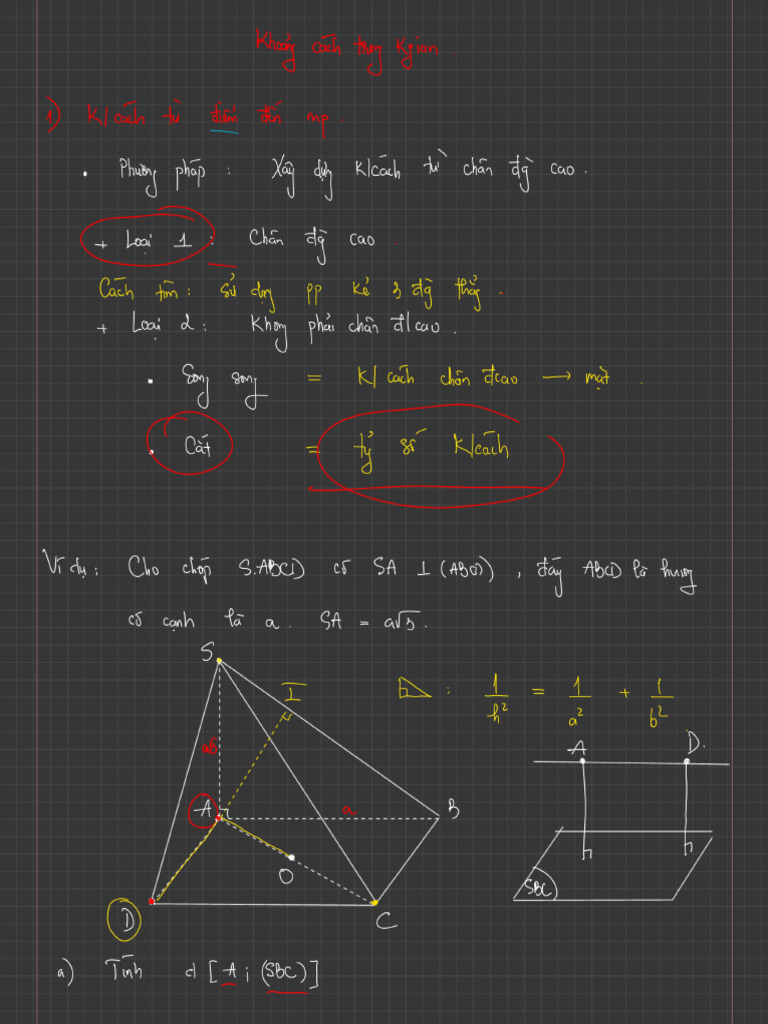 Khoảng cách trong Kgian
1) K/cách từ điểm đến mp.
• Phương pháp : Xây dựng K/cách từ chân đg cao.
+ Loại 1 : Chân đg cao
Cách tìm : sử dụng pp kẻ 3 đg thẳng.
+ Loại 2 : Không phải chân đ/cao.
• Song song = K/cách chân đcao → mặt.
• Cắt = tỷ số K/cách
Ví dụ : Cho chóp S.ABCD có SA ⊥ (ABCD), đáy ABCD là hvuong
có cạnh là a. SA = a√3.
S
I
: 1/h² = 1/a² + 1/b²
A D.
a√3
A a B
O
SBC
D C
a) Tính d[A; (SBC)]